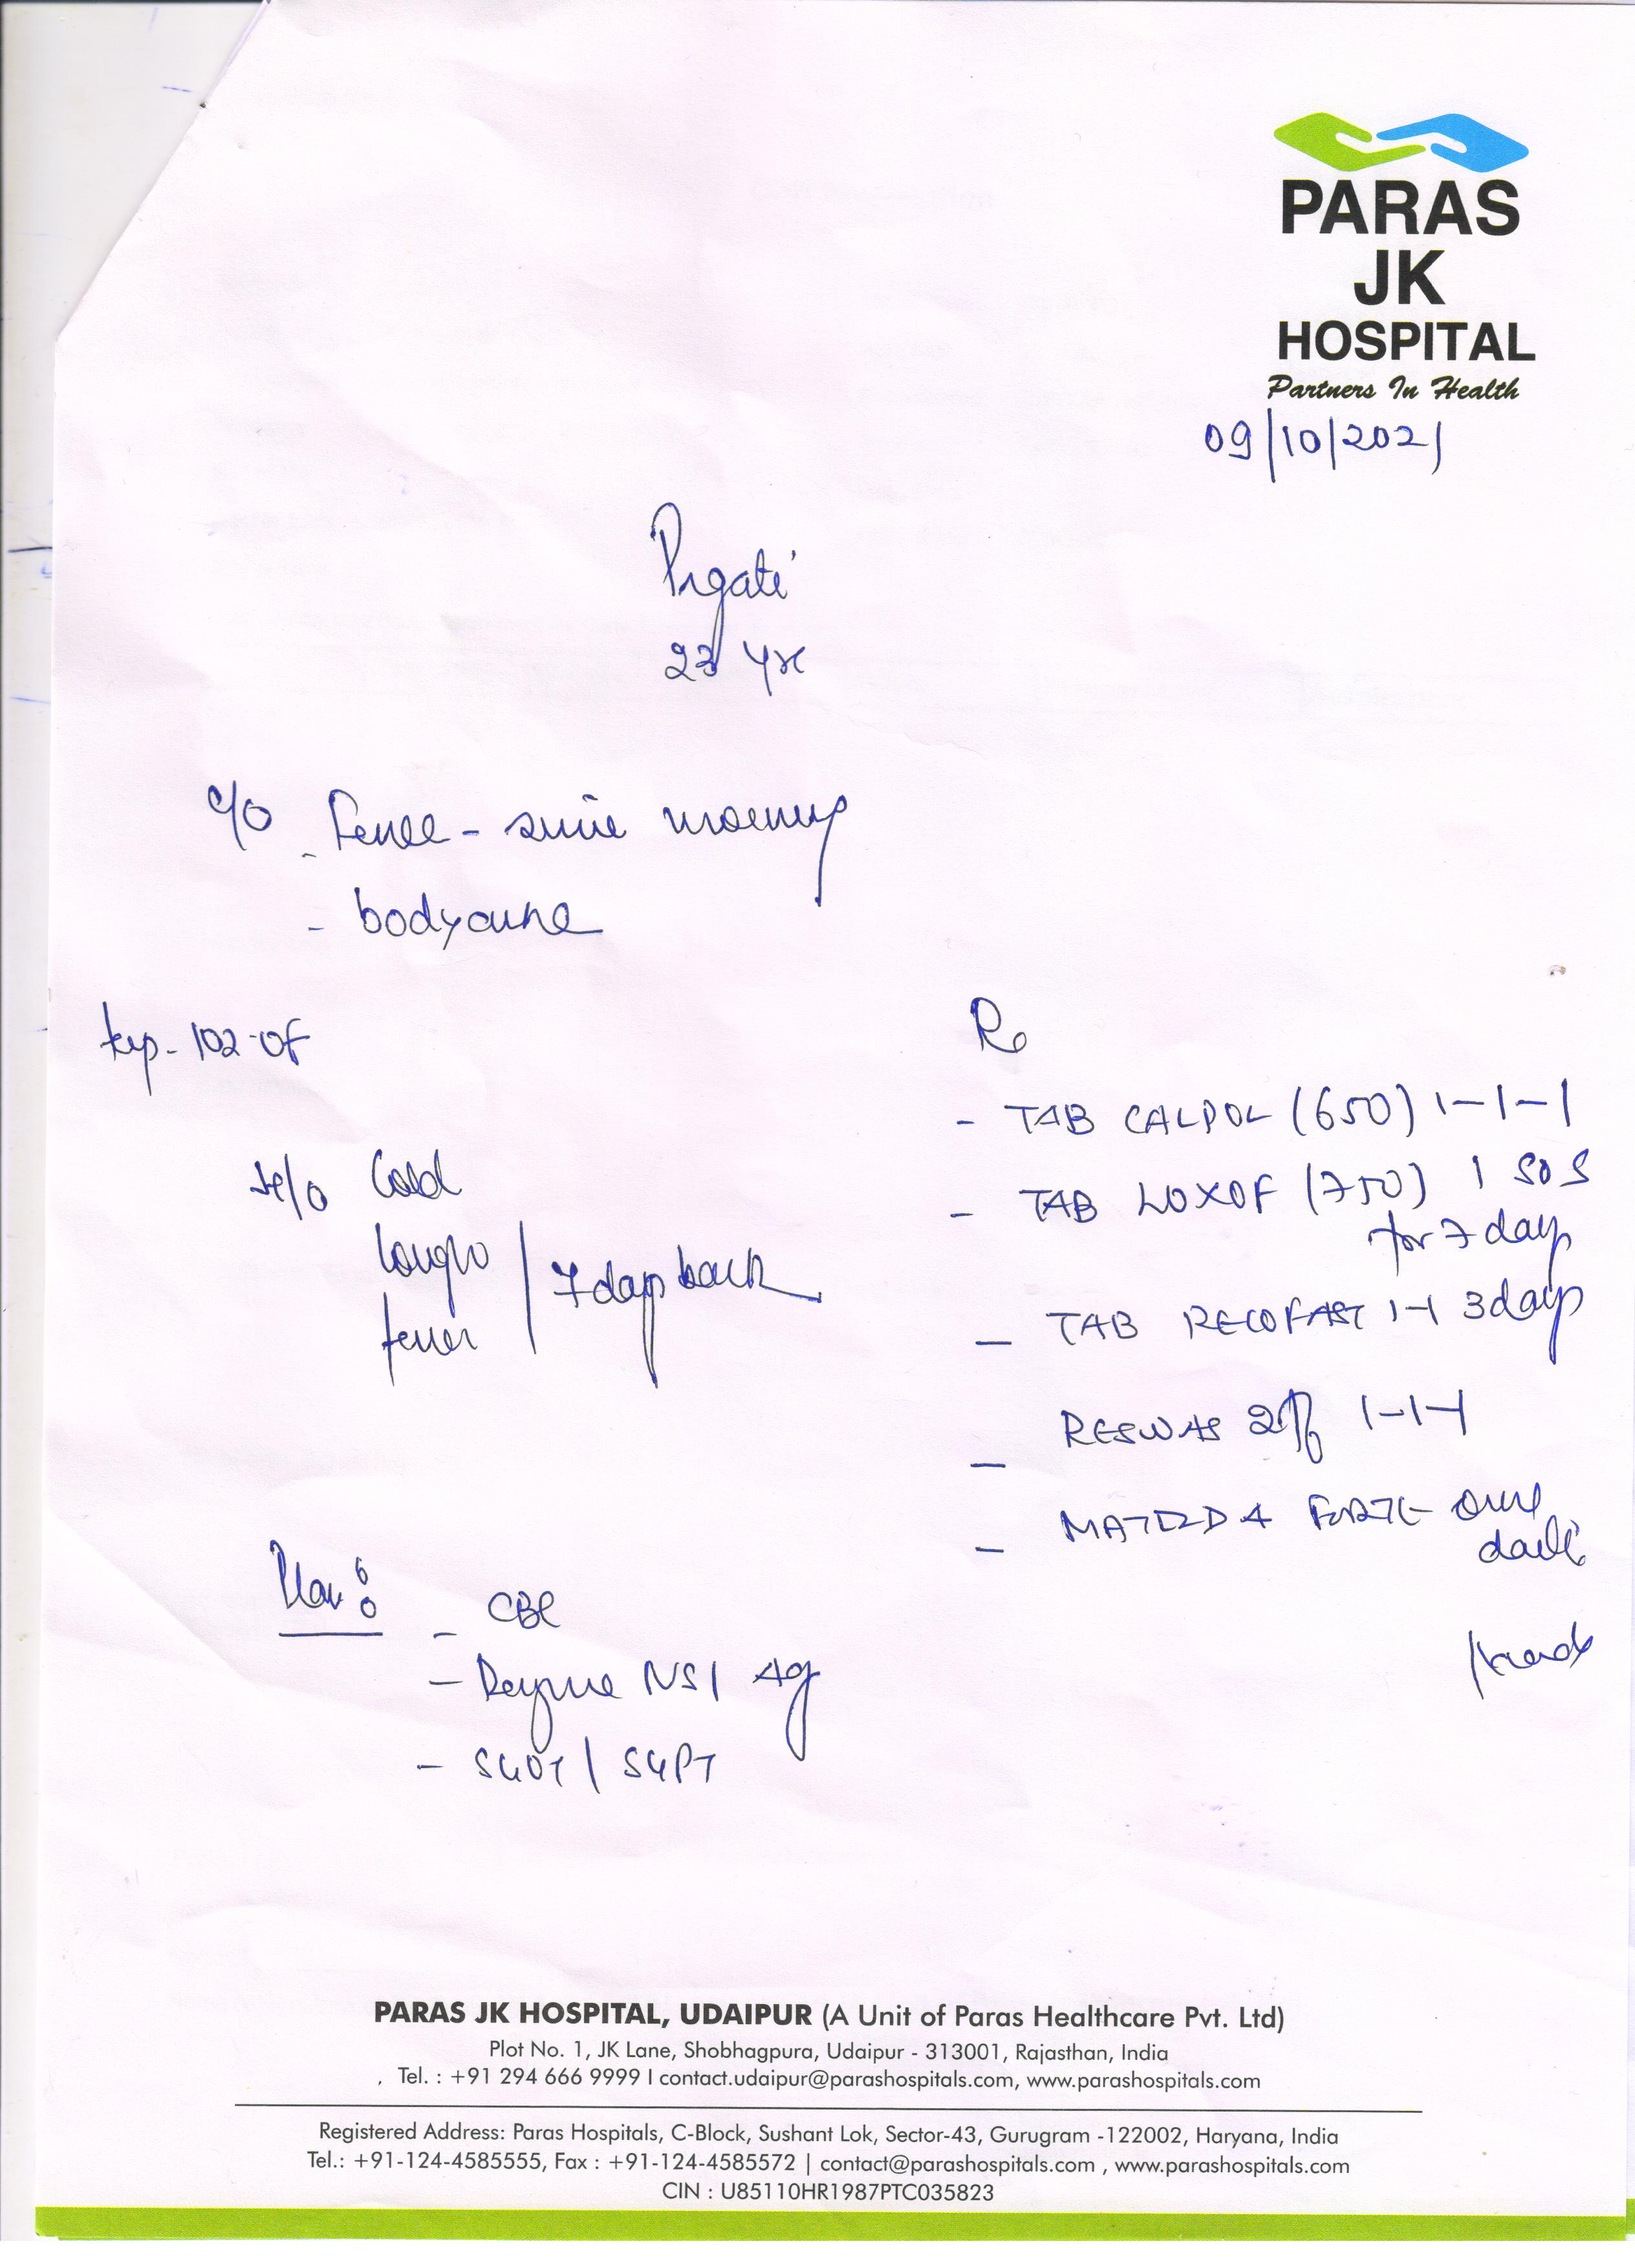 PARAS
JK
HOSPITAL
Partners In Health
09/10/2021
Prgati
23 yr
c/o
- Fever - since morning
- bodyache
temp - 102 °F
H/o Cold
Cough
fever / 7 days back
Rx
- TAB CALPOL (650) 1-1-1
- TAB LOXOF (750) 1 SOS
for 7 day
- TAB RECOFAST 1-1 3days
- RESWAS 2tsf 1-1-1
- FORTE once
daily
Plan:
- CBC
- Dengue NS1 Ag
- SGOT / SGPT
PARAS JK HOSPITAL, UDAIPUR (A Unit of Paras Healthcare Pvt. Ltd)
Plot No. 1, JK Lane, Shobhagpura, Udaipur - 313001, Rajasthan, India
Tel. : +91 294 666 9999 I contact.udaipur@parashospitals.com, www.parashospitals.com
Registered Address: Paras Hospitals, C-Block, Sushant Lok, Sector-43, Gurugram -122002, Haryana, India
Tel.: +91-124-4585555, Fax : +91-124-4585572 | contact@parashospitals.com , www.parashospitals.com
CIN : U85110HR1987PTC035823